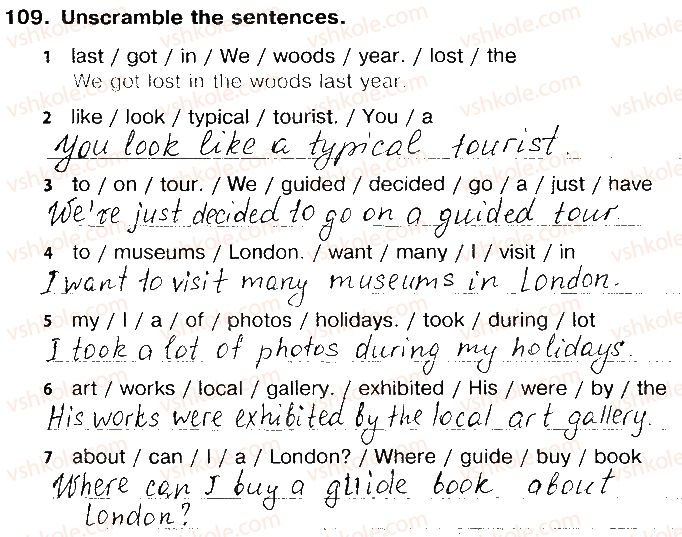 109. Unscramble the sentences.
1 last / got / in / We / woods / year. / lost / the
We got lost in the woods last year.
2 like / look / typical / tourist. / You / a
You look like a typical tourist.
3 to / on / tour. / We / guided / decided / go / a / just / have
We're just decided to go on a guided tour.
4 to / museums / London. / want / many / I / visit / in
I want to visit many museums in London.
5 my / I / a / of / photos / holidays. / took / during / lot
I took a lot of photos during my holidays.
6 art / works / local / gallery. / exhibited / His / were / by / the
His works were exhibited by the local art gallery.
7 about / can / I / a / London? / Where / guide / buy / book
Where can I buy a guide book about
London?